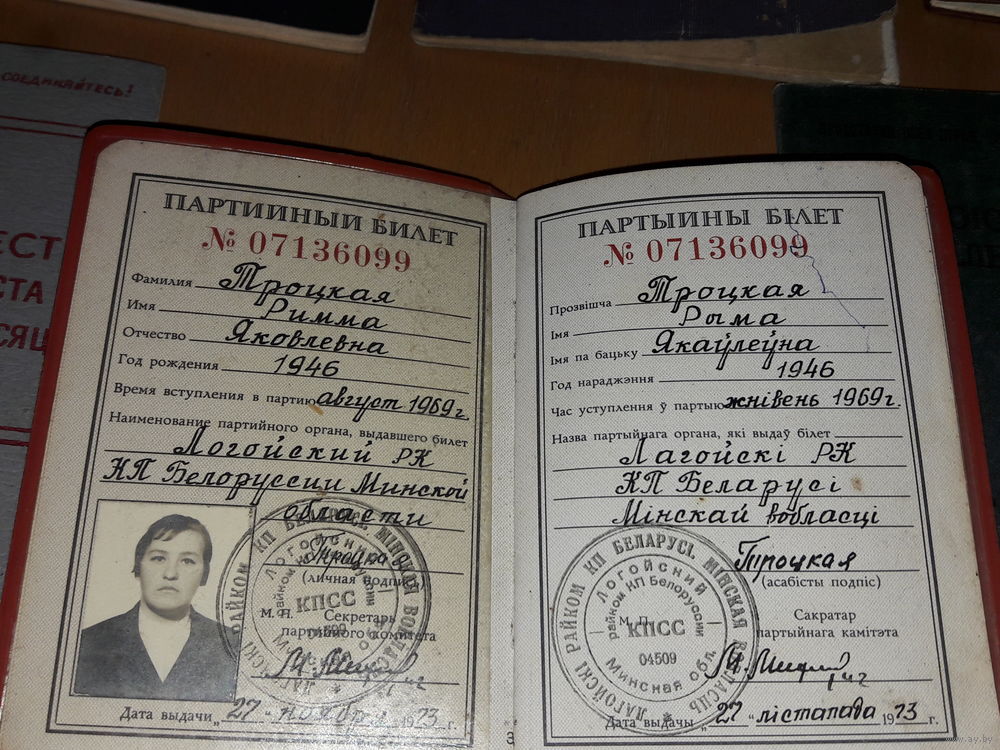 СОЕДИНЯЙТЕСЬ!
ПАРТИЙНЫЙ БИЛЕТ
№ 07136099
Фамилия Троцкая
Имя Римма
Отчество Яковлевна
Год рождения 1946
Время вступления в партию август 1969 г.
Наименование партийного органа, выдавшего билет
Логойский РК
КП Белоруссии Минской
области
Троцкая
(личная подпись)
М. П. Секретарь
партийного комитета
Дата выдачи „27“ ноября 1973 г.
ПАРТЫЙНЫ БІЛЕТ
№ 07136099
Прозвішча Троцкая
Імя Рыма
Імя па бацьку Якаўлеўна
Год нараджэння 1946
Час уступлення ў партыю жнівень 1969 г.
Назва партыйнага органа, які выдаў білет
Лагойскі РК
КП Беларусі
Мінскай вобласці
Троцкая
(асабісты подпіс)
М. П. Сакратар
партыйнага камітэта
Дата выдачы „27“ лістапада 1973 г.
ЛАГОЙСКІ РАЙКОМ КП БЕЛАРУСЬ МІНСКАЯ ВОБЛАСЦЬ
Логойский райком КП Белоруссии
КПСС
04509
Минская обл.
3
www.ay.by